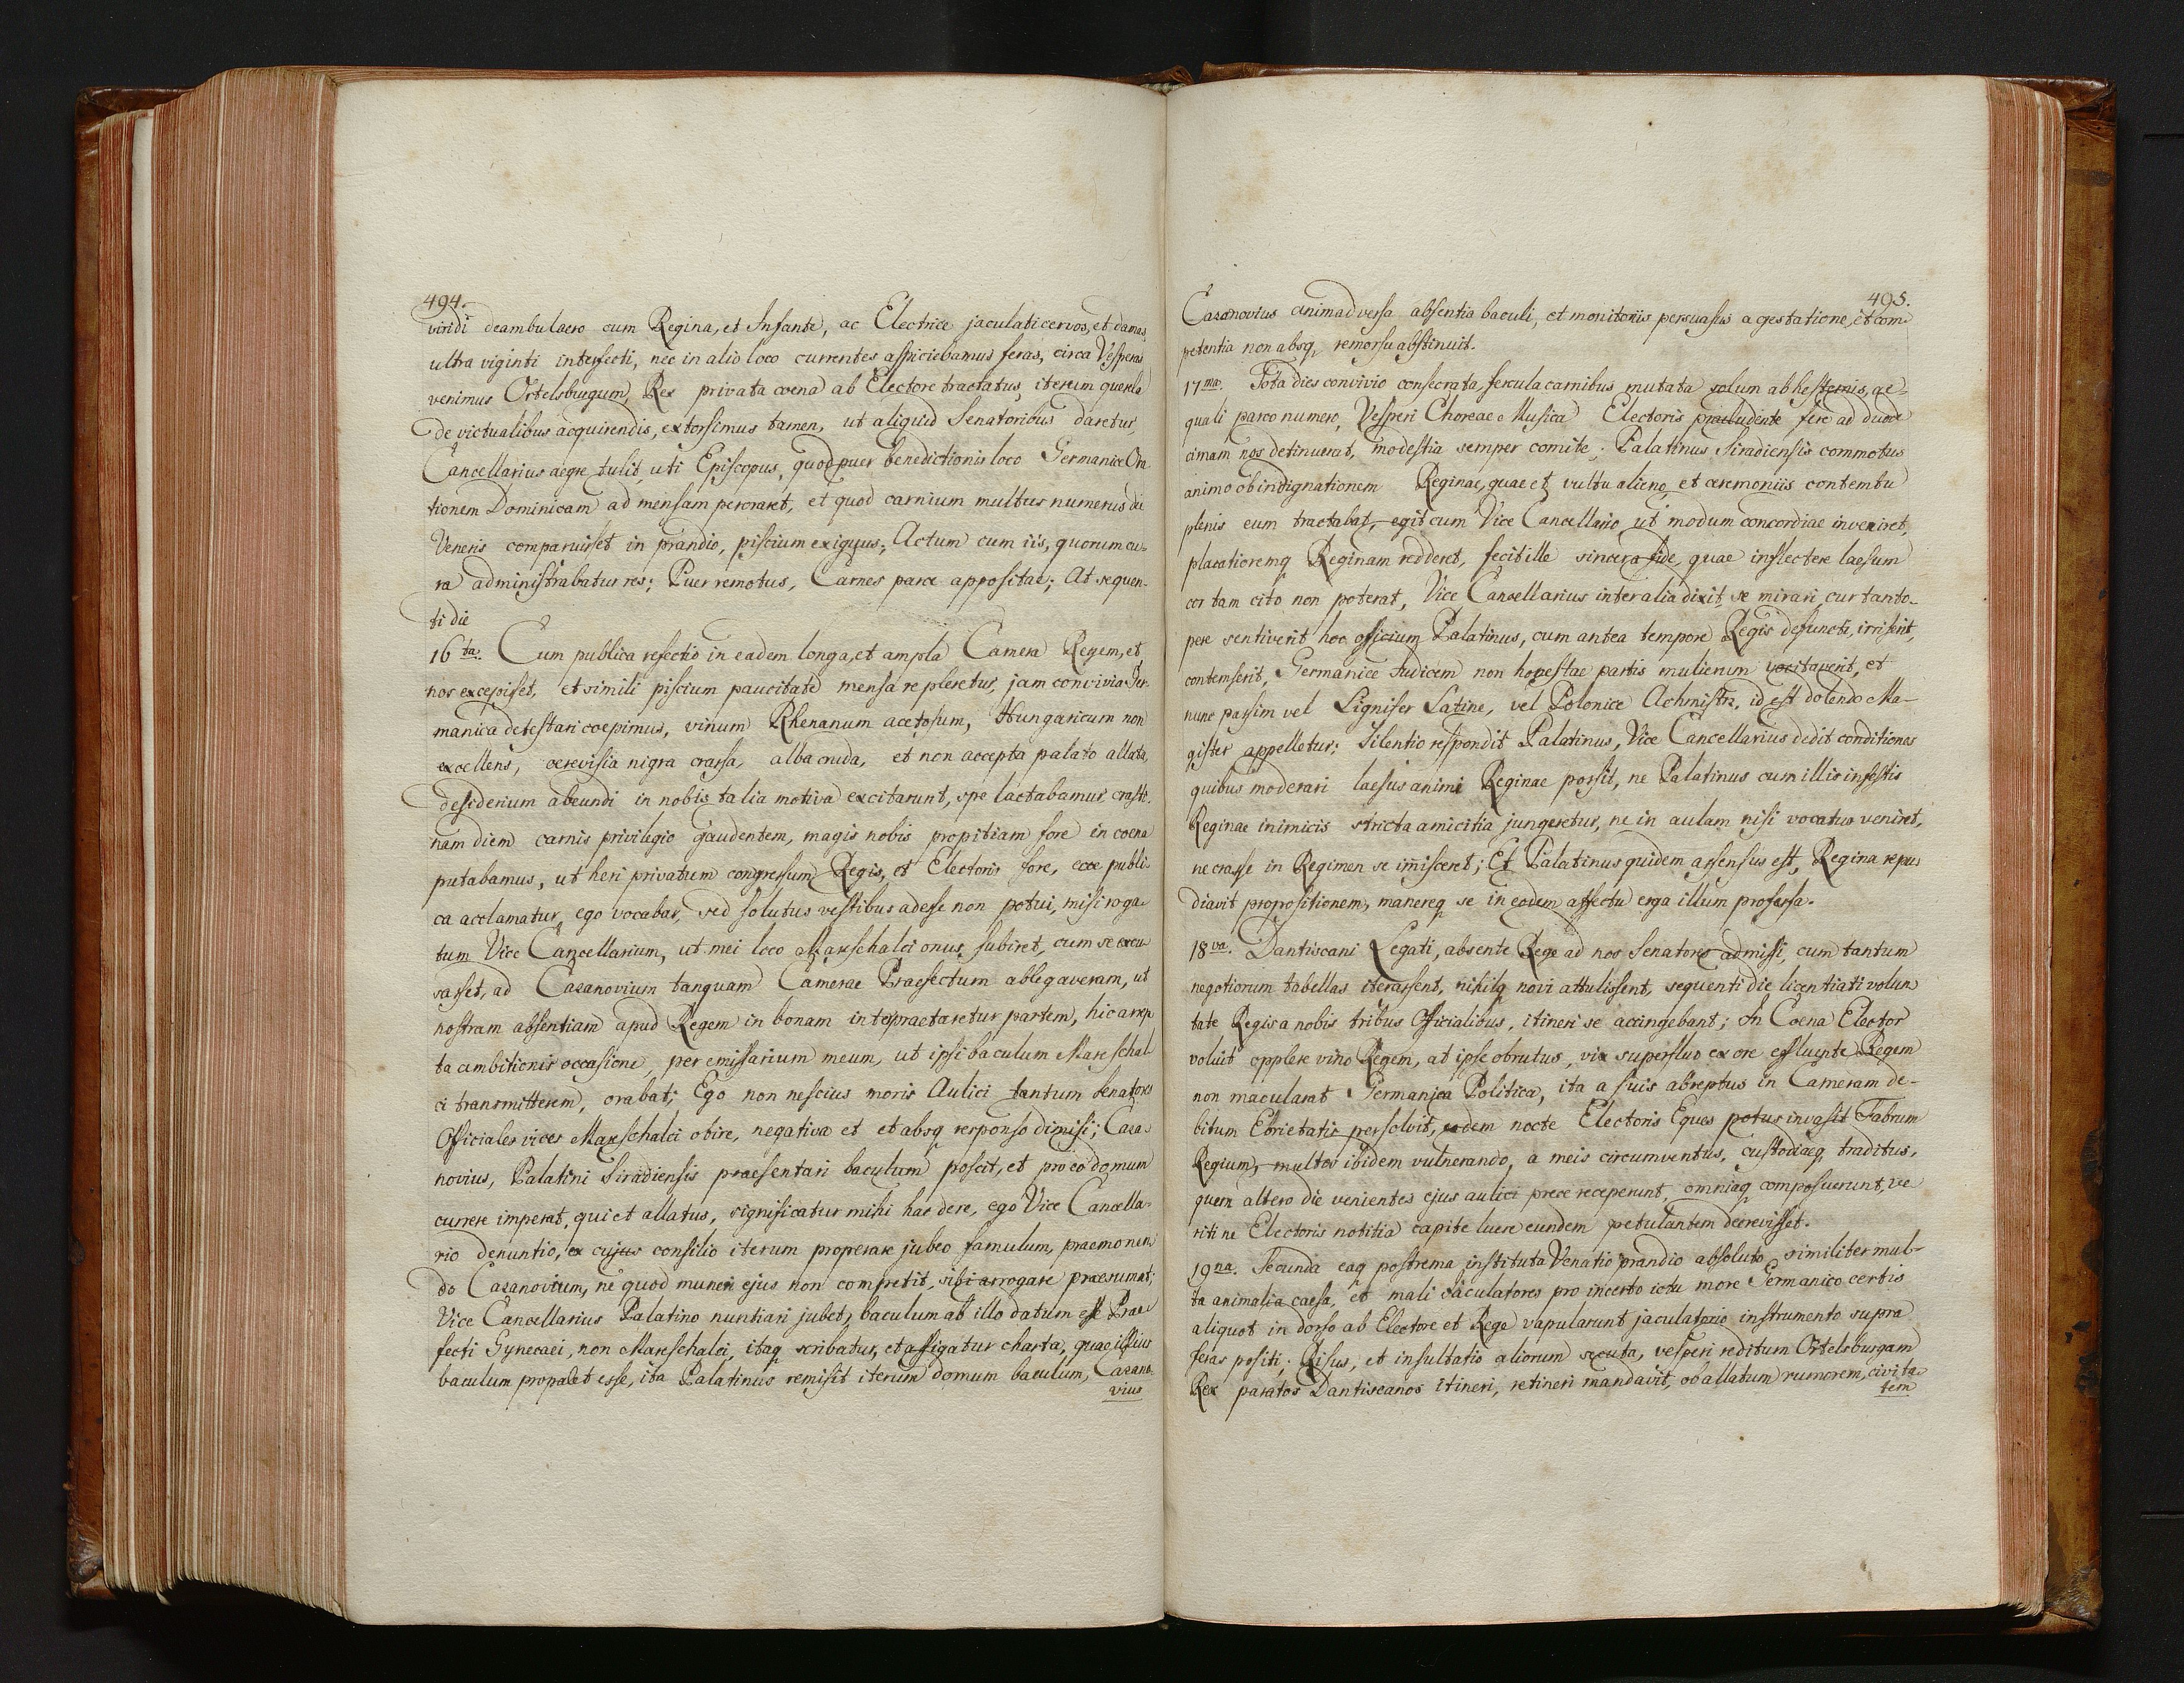 494.
viridi deambulacro cum Regina, et Infante, ac Electrice jaculati cervos, et damas
ultra viginti interfecti, nec in alio loco currentes aspiciebamus feras, circa Vesperas
venimus Ortelsburgum, Rex privata coena ab Electore tractatus, iterum querela
de victualibus acquirendis, extorsimus tamen, ut aliquid Senatoribus daretur,
Cancellarius aegre tulit, uti Episcopus, quod puer benedictionis loco Germanice Ora
tionem Dominicam ad mensam peroraret, et quod carnium multus numerus die
Veneris comparuisset in prandio, piscium exiguus; Actum cum iis, quorum cu-
ra administrabatur res; Puer remotus, Carnes parce appositae; At sequen-
ti die
16ta. Cum publica refectio in eadem longa, et ampla Camera Regem, et
nos excepisset, et simili piscium paucitate mensa repleretur, jam convivia Ger-
manica detestari coepimus, vinum Rhenanum acetosum, Hungaricum non
excellens, cerevisia nigra crassa, alba cruda, et non accepta palato allata,
desiderium abeundi in nobis talia motiva excitarunt, spe lactabamur, crasti-
nam diem carnis privilegio gaudentem, magis nobis propitiam fore in coena
putabamus, ut heri privatum congressum Regis, et Electoris fore, ecce publi-
ca acclamatur, ego vocabar, sed solutus vestibus adesse non potui, misi roga-
tum Vice Cancellarium, ut mei loco Marschalci onus subiret, cum se excu
sasset, ad Cazanovium tanquam Camerae Praefectum ablegaveram, ut
nostram absentiam apud Regem in bonam interpraetaretur partem, hic arrep
ta ambitionis occasione, per emissarium meum, ut ipsi baculum Marschal
ci transmitterem, orabat; Ego non nescius moris Aulici tantum Senatores
Officiales vices Marschalci obire, negativa et et absq responso dimisi; Caza-
novius, Palatini Siradiensis praesentari baculum poscit, et pro eo domum
currere imperat, qui et allatus, significatur mihi hac de re, ego Vice Cancella-
rio denuntio, ex cujus consilio iterum properare jubeo famulum, praemonen
do Cazanovium, ne quod muneri ejus non competit, sibi arrogare praesumat;
Vice Cancellarius Palatino nuntiari jubet, baculum ab illo datum esse Prae-
fecti Gynecaei, non Marschalci, itaq scribatur, et affigatur charta, quae illius
baculum propalet esse, ita Palatinus remisit iterum domum baculum, Cazano-
vius
495.
Cazanovius animadversa absentia baculi, et monitoriis persuasus a gestatione, et com-
petentia non absq remorsu abstinuit.
17ma. Tota dies convivio consecrata, fercula carnibus mutata solum ab hesternis, ae-
quali parco numero, Vesperi Choreae Musica Electoris praeludente fere ad duode
cimam nos detinuerat, modestia semper comite; Palatinus Siradiensis commotus
animo ob indignationem Reginae, quae et vultu alieno, et ceremoniis contemtu
plenis eum tractabat, egit cum Vice Cancellario ut modum concordiae inveniret,
placatioremq Reginam redderet, fecit ille sincera fide, quae inflectere laesum
cor tam cito non poterat, Vice Cancellarius inter alia dixit, se mirari, cur tanto-
pere sentiverit hoc officium Palatinus, cum antea tempore Regis defuncti, irriserit,
contemserit, Germanice Judicem non honestae partis mulierum vocitaverit, et
nunc passim vel Lignifer Latine, vel Polonice Achmistrz, id est dolendo Ma-
gister appelletur; Silentio respondit Palatinus, Vice Cancellarius dedit conditiones
quibus moderari laesus animi Reginae possit, ne Palatinus cum illis infestis
Reginae inimicis stricta amicitia jungeretur, ne in aulam nisi vocatus veniret,
ne crasse in Regimen se imisceret; Et Palatinus quidem assensus est, Regina repu-
diavit propositionem, manereq se in eodem affectu erga illum professa.
18va. Dantiscani Legati, absente Rege ad nos Senatores admissi, cum tantum
negotiorum tabellas iterassent, nihilq novi attulissent, sequenti die licentiati volun
tate Regis a nobis tribus Officialibus, itineri se accingebant; In Coena Elector
voluit opplere vino Regem, at ipse obrutus, vix superfluo ex ore effluente Regem
non macularat Germanica Politica, ita a suis abreptus in Cameram de-
bitum Ebrietatis persolvit, eadem nocte Electoris Eques potus invasit Fabrum
Regium, multos ibidem vulnerando, a meis circumventus, custodiaeq traditus,
quem altero die venientes ejus aulici prece receperunt, omniaq composuerunt, ve
riti ne Electoris notitia capite luere eundem petulantem decrevisset.
19na. Secunda eaq postrema instituta Venatio prandio absoluto, similiter mul-
ta animalia caesa, et mali jaculatores pro incerto ictu more Germanico certis
aliquot in dorso ab Electore et Rege vapularunt jaculatorio instrumento supra
feras positi; Risus, et insultatio aliorum secuta, vesperi reditum Ortelsburgam
Rex paratos Dantiscanos itineri, retineri mandavit, ob allatum rumorem, civita-
tem